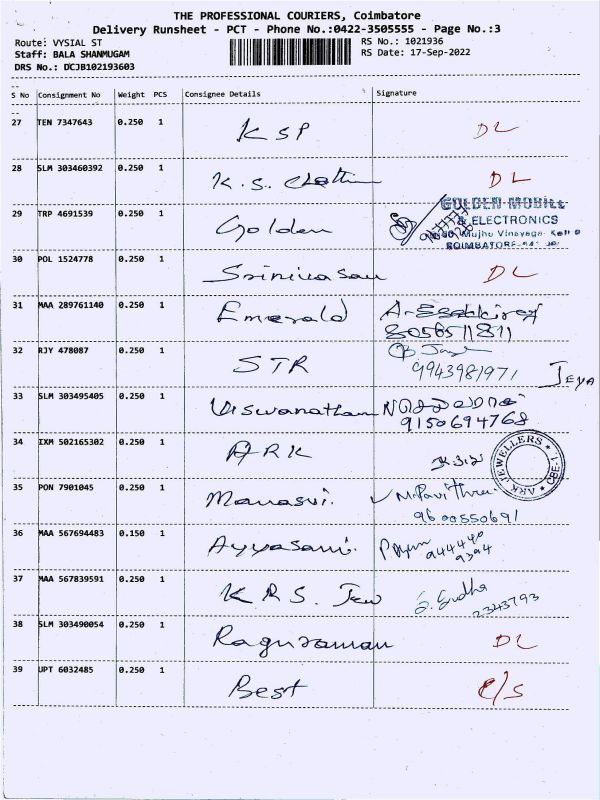 THE PROFESSIONAL COURIERS, Coimbatore
Delivery Runsheet - PCT - Phone No.:0422-3505555 - Page No.:3
Route: VYSIAL ST RS No.: 1021936
Staff: BALA SHANMUGAM RS Date: 17-Sep-2022
DRS No.: DCJB102193603
S No Consignment No Weight PCS Consignee Details Signature
27 TEN 7347643 0.250 1 KSP DL
28 SLM 303460392 0.250 1 K.S. DL
29 TRP 4691539 0.250 1 Golden
GOLDEN MOBILE
& ELECTRONICS
30 POL 1524778 0.250 1 Srinivasan DL
31 MAA 289761140 0.250 1 Emerald
32 RJY 478087 0.250 1 STR
9943981971 JEYA
33 SLM 303495405 0.250 1 Viswanatham
9150694768
34 IXM 502165302 0.250 1 ARK
ARK JEWELLERS
35 PON 7901045 0.250 1 Manasvi. M. Pavithra
9600550691
36 MAA 567694483 0.150 1 Ayyasami.
37 MAA 567839591 0.250 1 K.R.S. Jew S. Sudha
2343793
38 SLM 303490054 0.250 1 Raguraman DL
39 UPT 6032485 0.250 1 Best C/S